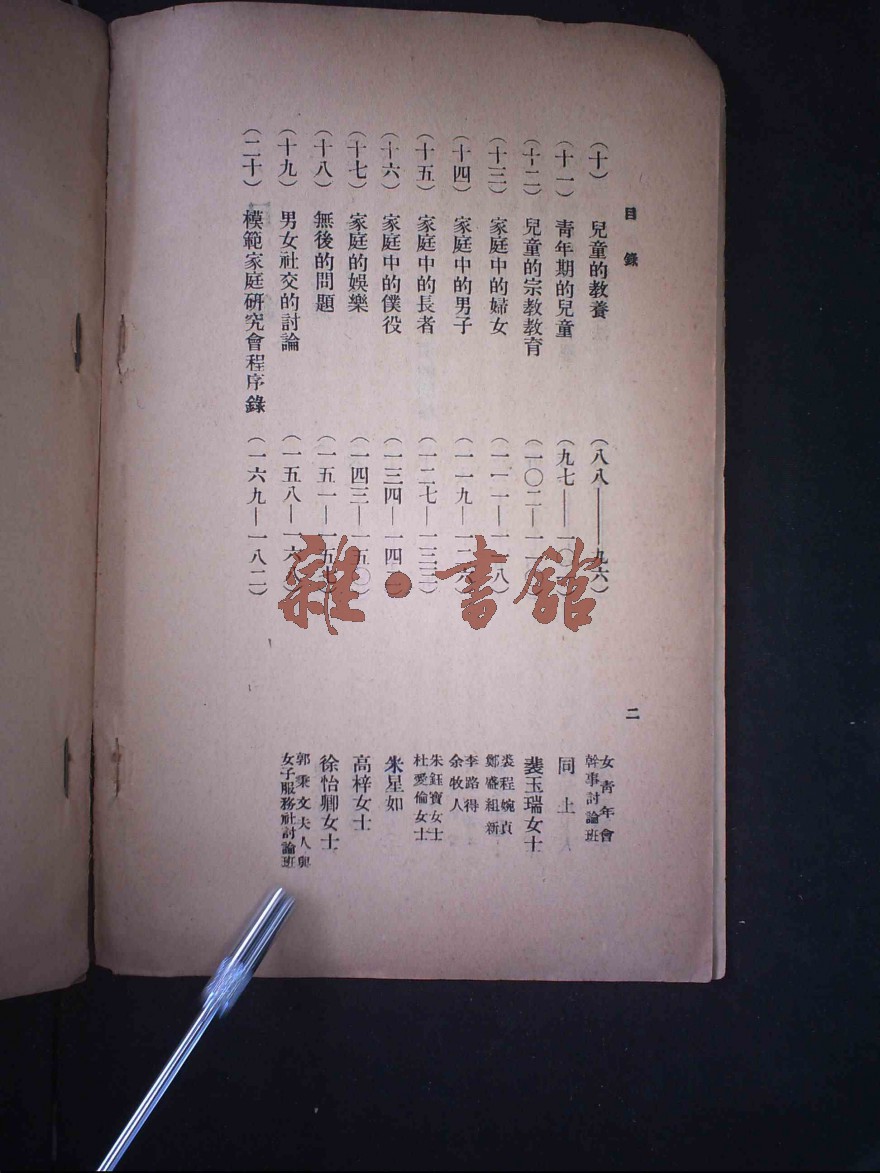 目錄
二
（十） 兒童的教養 （八八——九六） 女青年會幹事討論班
（十一） 青年期的兒童 （九七—— 同上
（十二） 兒童的宗教教育 （一〇二—一 裴玉瑞女士
（十三） 家庭中的婦女 （一一一—一一八） 裘程婉貞 鄭盛組新
（十四） 家庭中的男子 （一一九—一二六） 李路得 余牧人
（十五） 家庭中的長者 （一二七—一三三） 朱鈺寶女士 杜愛倫女士
（十六） 家庭中的僕役 （一三四—一四二） 朱星如
（十七） 家庭的娛樂 （一四三—一五〇） 高梓女士
（十八） 無後的問題 （一五一—一五七） 徐怡卿女士
（十九） 男女社交的討論 （一五八—一六八） 郭秉文夫人與女子服務社討論班
（二十） 模範家庭研究會程序錄 （一六九—一八二）
雜·書館